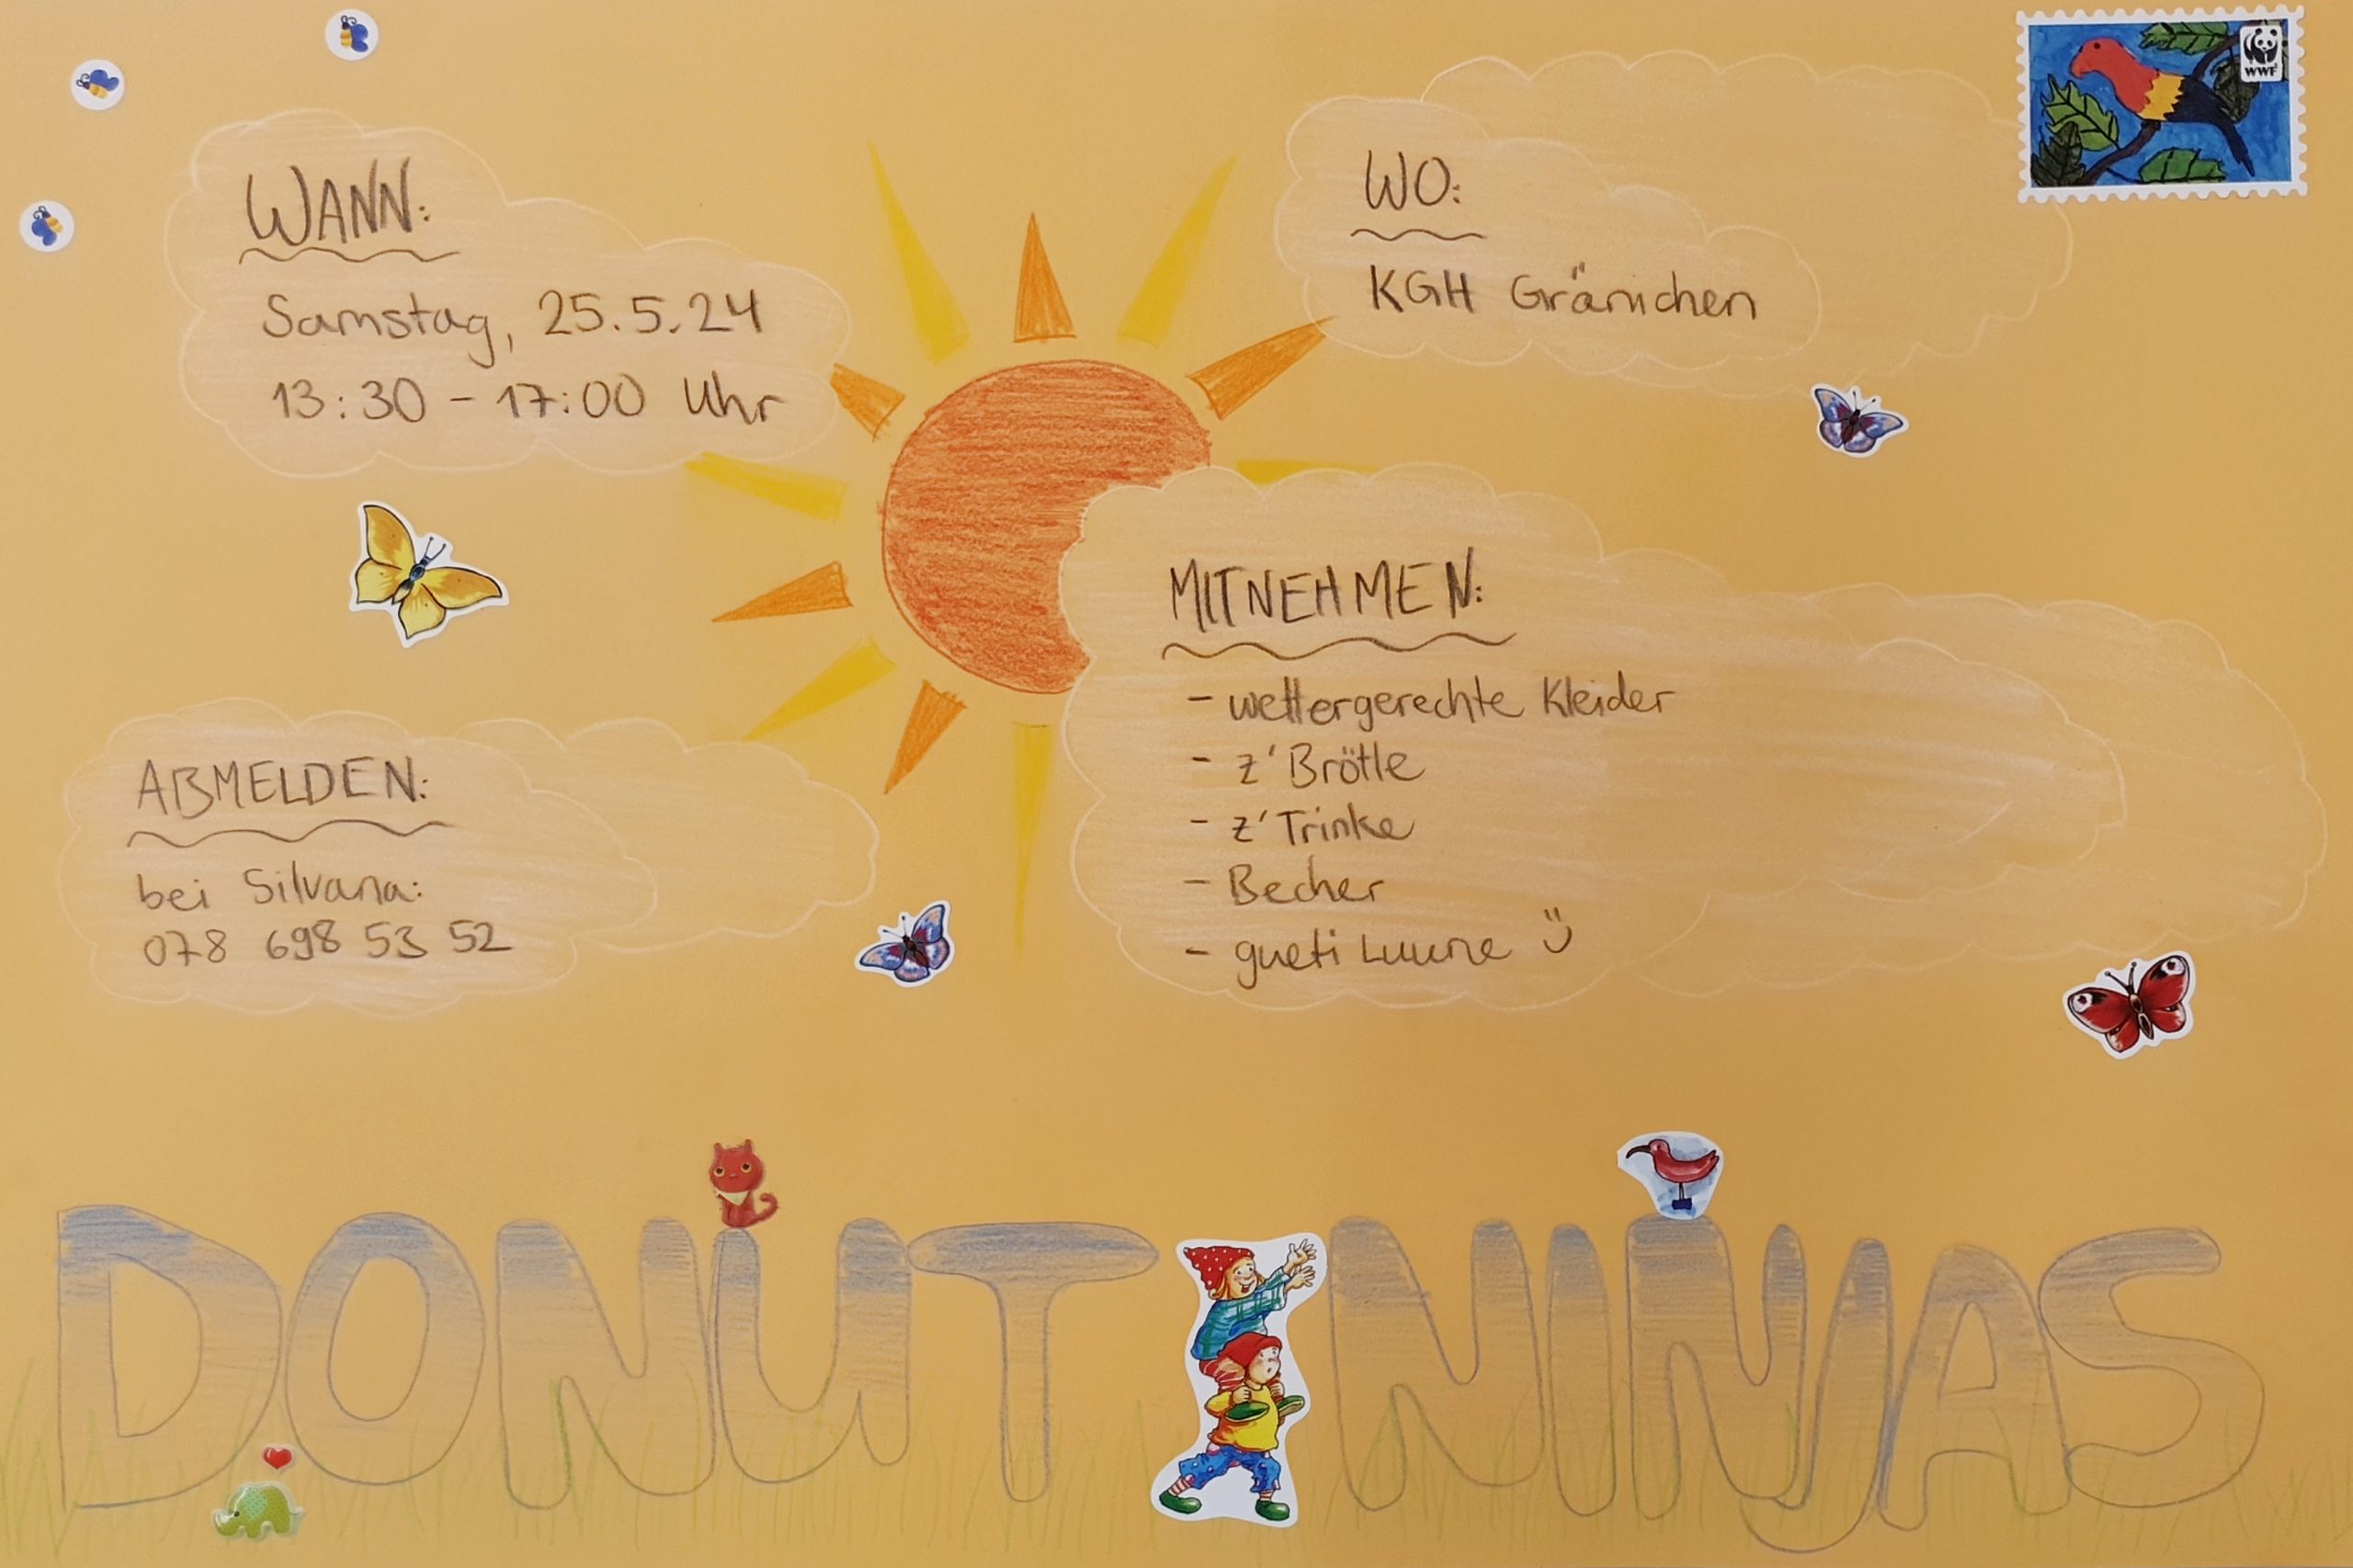 WANN:
Samstag, 25.5.24
13:30 - 17:00 Uhr
WO:
KGH Gränichen
WWF
MITNEHMEN:
- wettergerechte Kleider
- z'Brötle
- z'Trinke
- Becher
- gueti Luune
ABMELDEN:
bei Silvana:
078 698 53 52
DONUT NINJAS